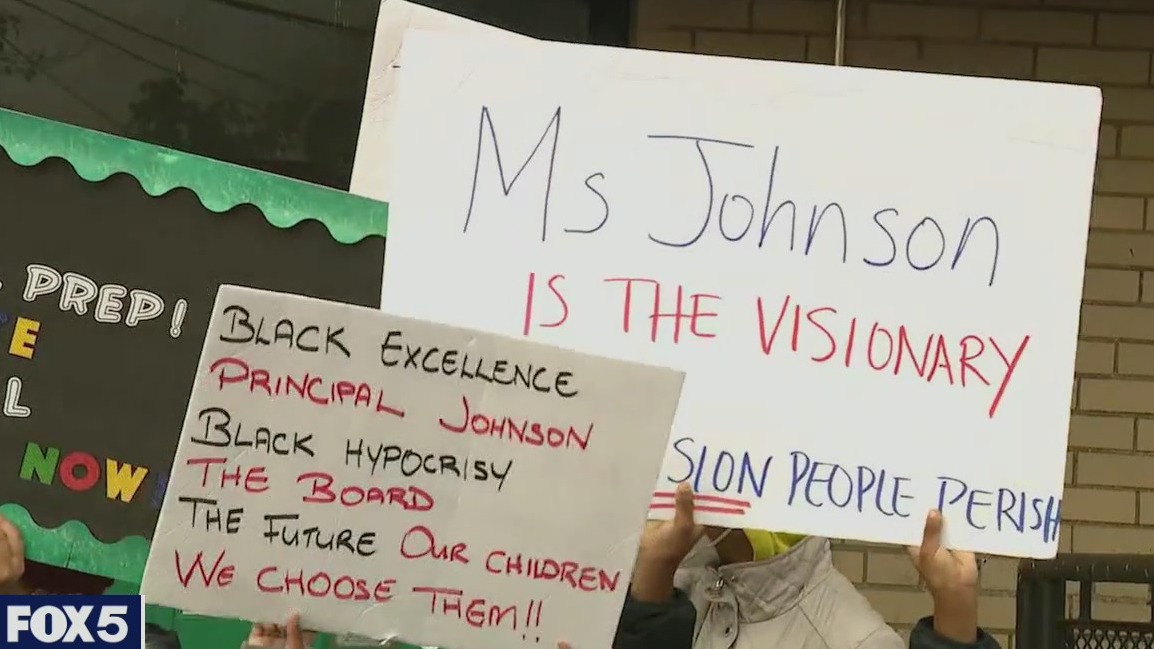 Ms Johnson
IS THE VISIONARY
SION PEOPLE PERISH
PREP!
E
L
NOW
BLACK EXCELLENCE
PRINCIPAL JOHNSON
BLACK HYPOCRISY
THE BOARD
THE FUTURE OUR CHILDREN
WE CHOOSE THEM!!
FOX 5